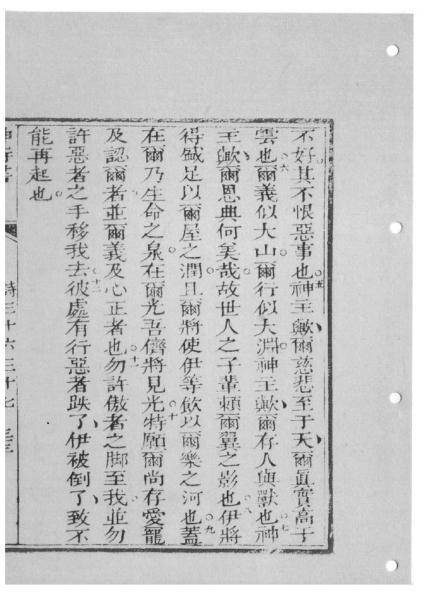 不好其不恨惡事也○五神主歟爾慈悲至于天爾眞實高于
雲也○六爾義似大山爾行似大淵神主歟爾存人與獸也○七神
主歟爾恩典何矣哉故世人之子輩賴爾翼之影也○八伊將
得足以爾屋之潤且爾將使伊等飮以爾樂之河也○九蓋
在爾乃生命之泉在爾光吾儕將見光○十特願爾尚存愛寵
及認爾者並爾義及心正者也○十一勿許傲者之脚至我並勿
許惡者之手移我去○十二彼處有行惡者跌了伊被倒了致不
能再起也
詩三十六三十七